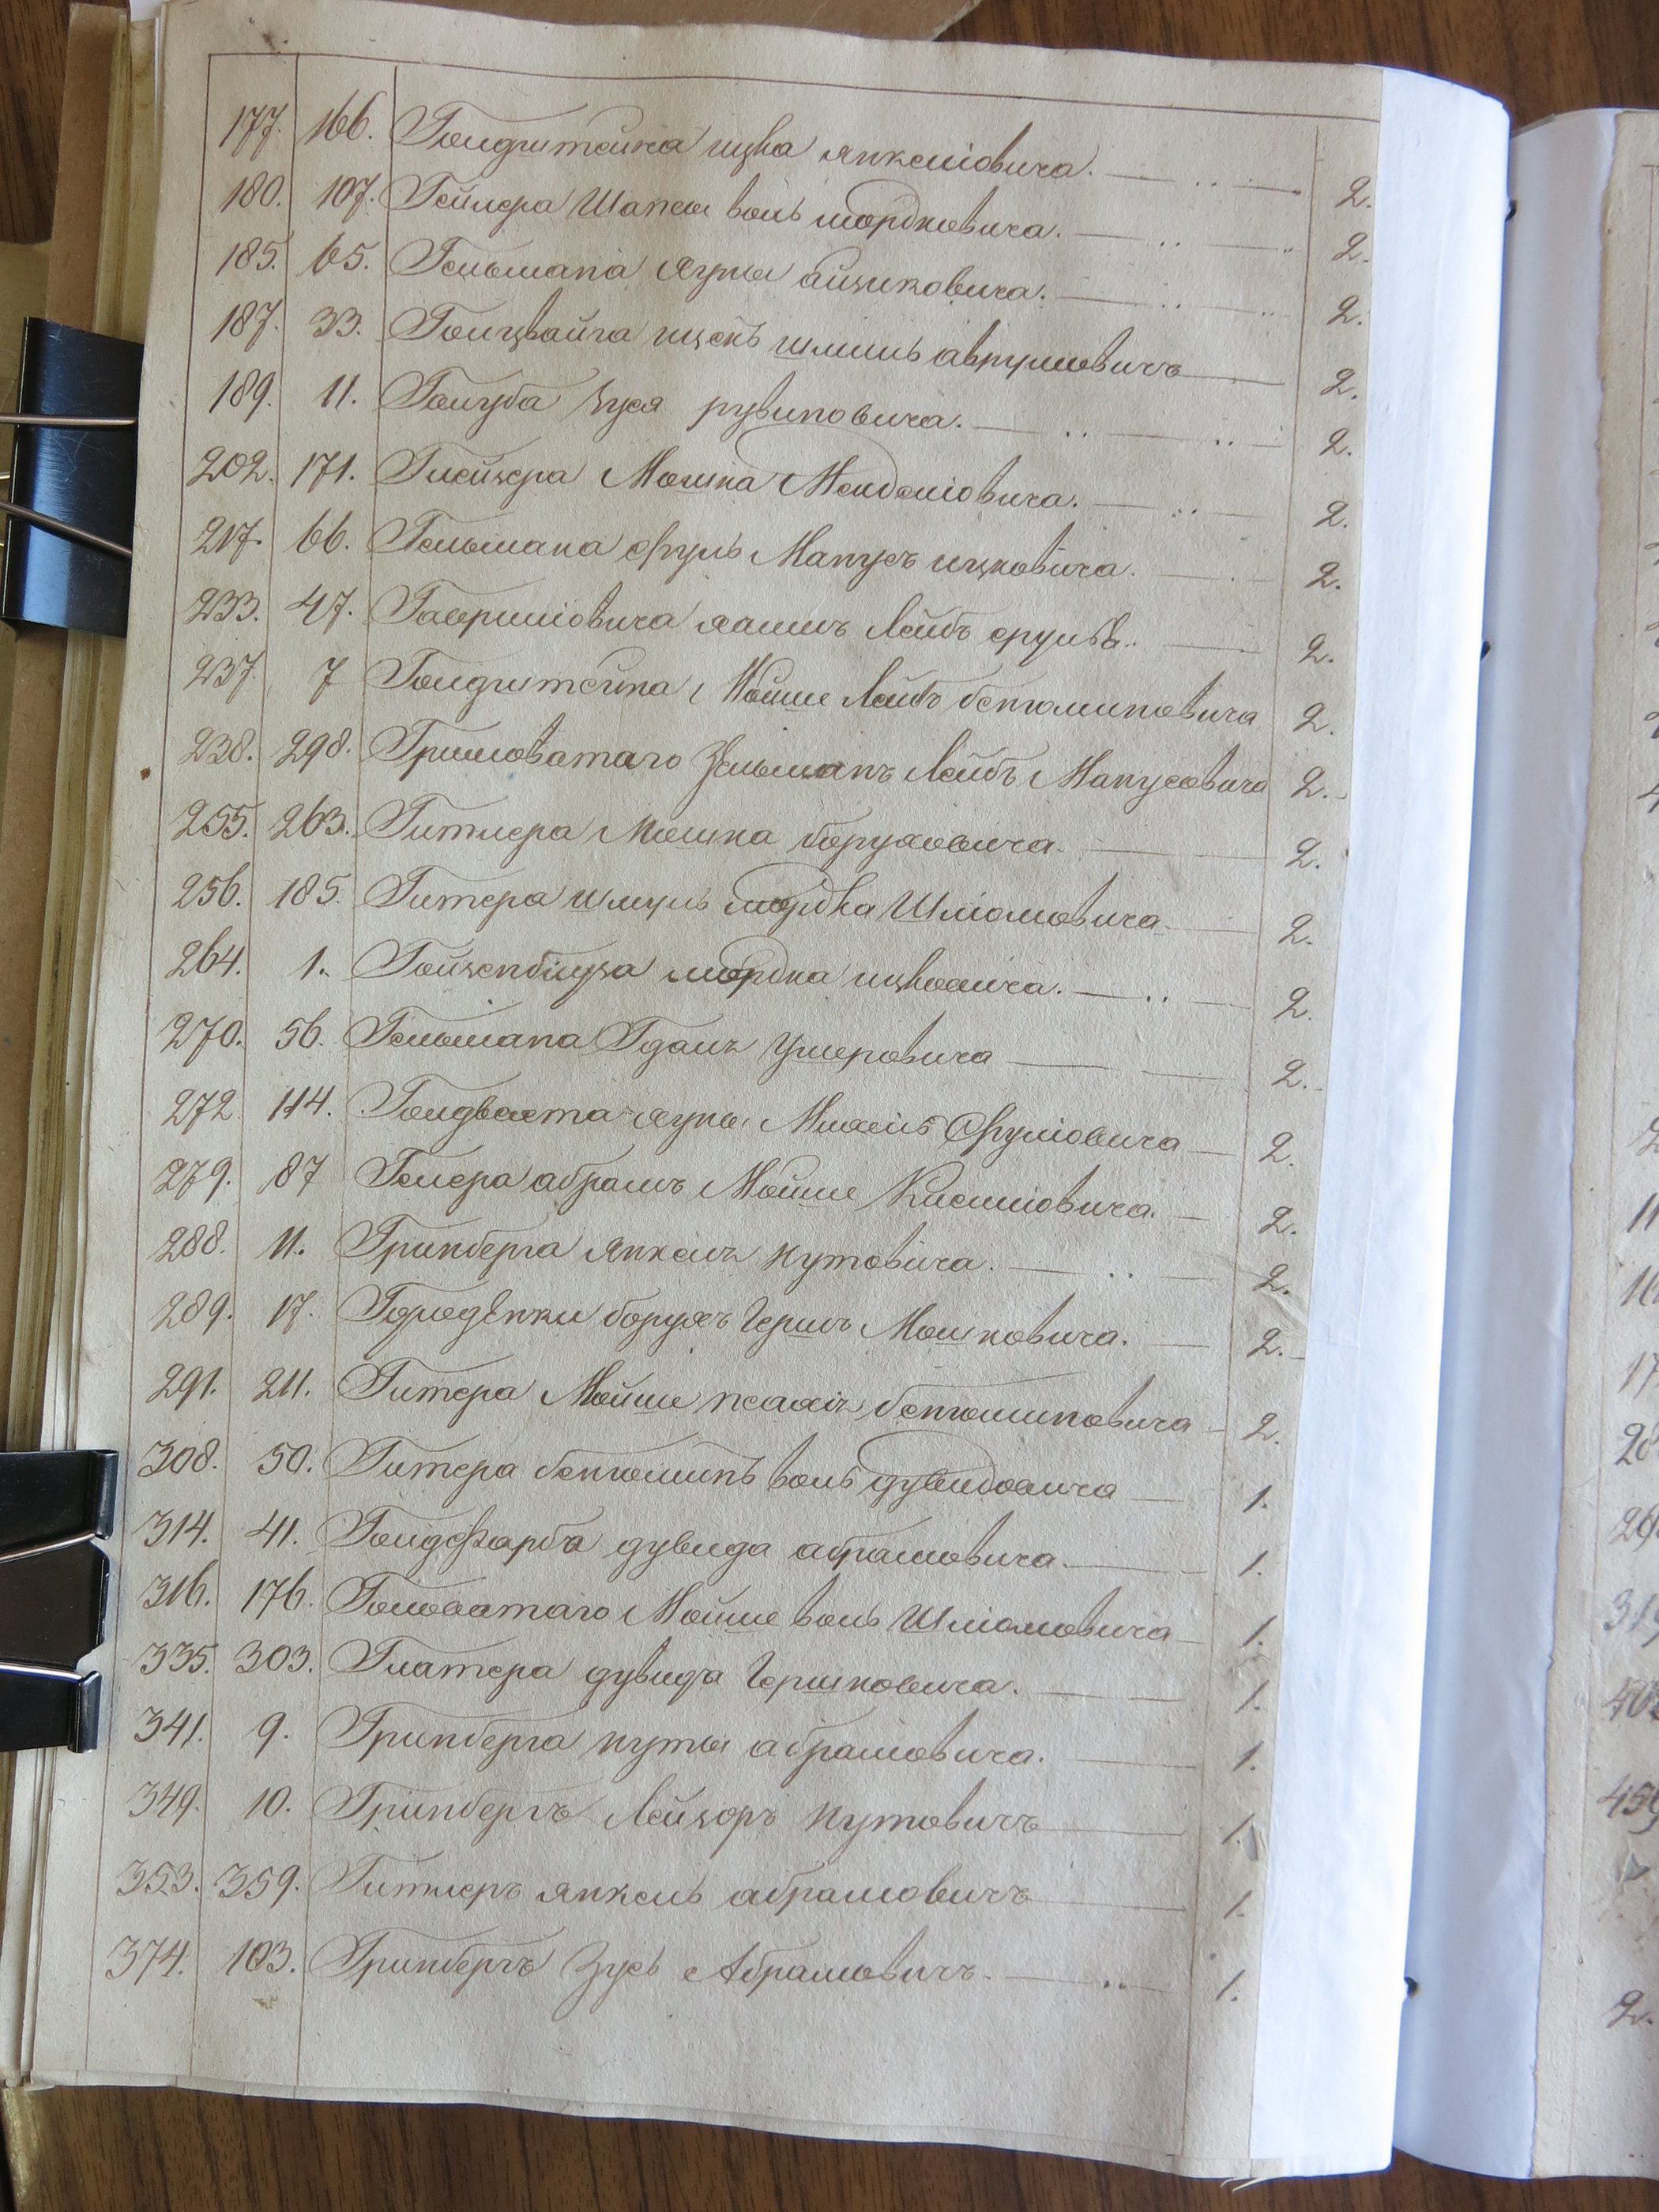 177. 166. Гольдштейна ицка янкелiовича. 2.
180. 107. Геллера Шапсы воль мордковича. 2.
185. 65. Гельмана Хуны айзиковича. 2.
187. 33. Гольцвайга ицекъ шлiимъ аврумовичъ 2.
189. 11. Голуба Зуся рувиновича. 2.
202. 171. Глейзера Мошка Менделiовича. 2.
217. 66. Гельмана сруль Манусъ ицковича. 2.
233. 47. Гаврилiовича хаимъ Лейбъ срулiов. 2.
237. 7 Гольдштейна Мойше Лейбъ бенюминовича 2.
238. 298. Грилiоватаго Зельманъ Лейбъ Манусовича 2.
255. 263. Гитлера Мошка боруховича. 2.
256. 185. Гитера шмуль мордка Шлiомовича. 2.
264. 1. мордка ицковича. 2.
270. 56. Гельмана Гданъ Ушеровича 2.
272 114. Хуны Михель Срулiовича 2.
279. 87 Гелера абрамъ Мойше Кисилiовича. 2.
288. 11. Гринберга янкель нутовича. 2.
289. 17. Городенки борухъ Гершъ Мошковича. 2.
291. 211. Гитера Мойше псахiя бенюминовича 2.
308. 50. Гитера бенюминъ воль дувидовича 1.
314. 41. Гольдфарба дувида абрамовича. 1.
316. 176. Головатаго Мойше воль Шлiомовича 1.
335. 303. Глатера дувида Гершковича. 1.
341. 9. Гринберга нуты абрамовича. 1.
349. 10. Гринбергъ Лейзоръ нутовичъ 1.
353. 359. Гитлеръ янкель абрамовичъ 1.
374. 103. Гринбергъ Зусь Абрамовичъ. 1.